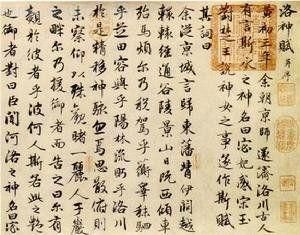 洛神賦 并序
黃初三年余朝京師還濟洛川古人
有言斯水之神名曰宓妃感宋玉
對楚王說神女之事遂作斯賦
其詞曰
余從京域言歸東藩背伊闕越
轘轅經通谷陵景山日既西傾車
殆馬煩尔乃稅駕乎蘅皋秣駟
乎芝田容與乎陽林流眄乎洛川
於是精移神駭忽焉思散俯則
未察仰以殊觀睹一麗人于巖
之畔尔乃援御者而告之曰尔有
覿於彼者乎彼何人斯若此之豔
也御者對曰臣聞河洛之神名曰宓